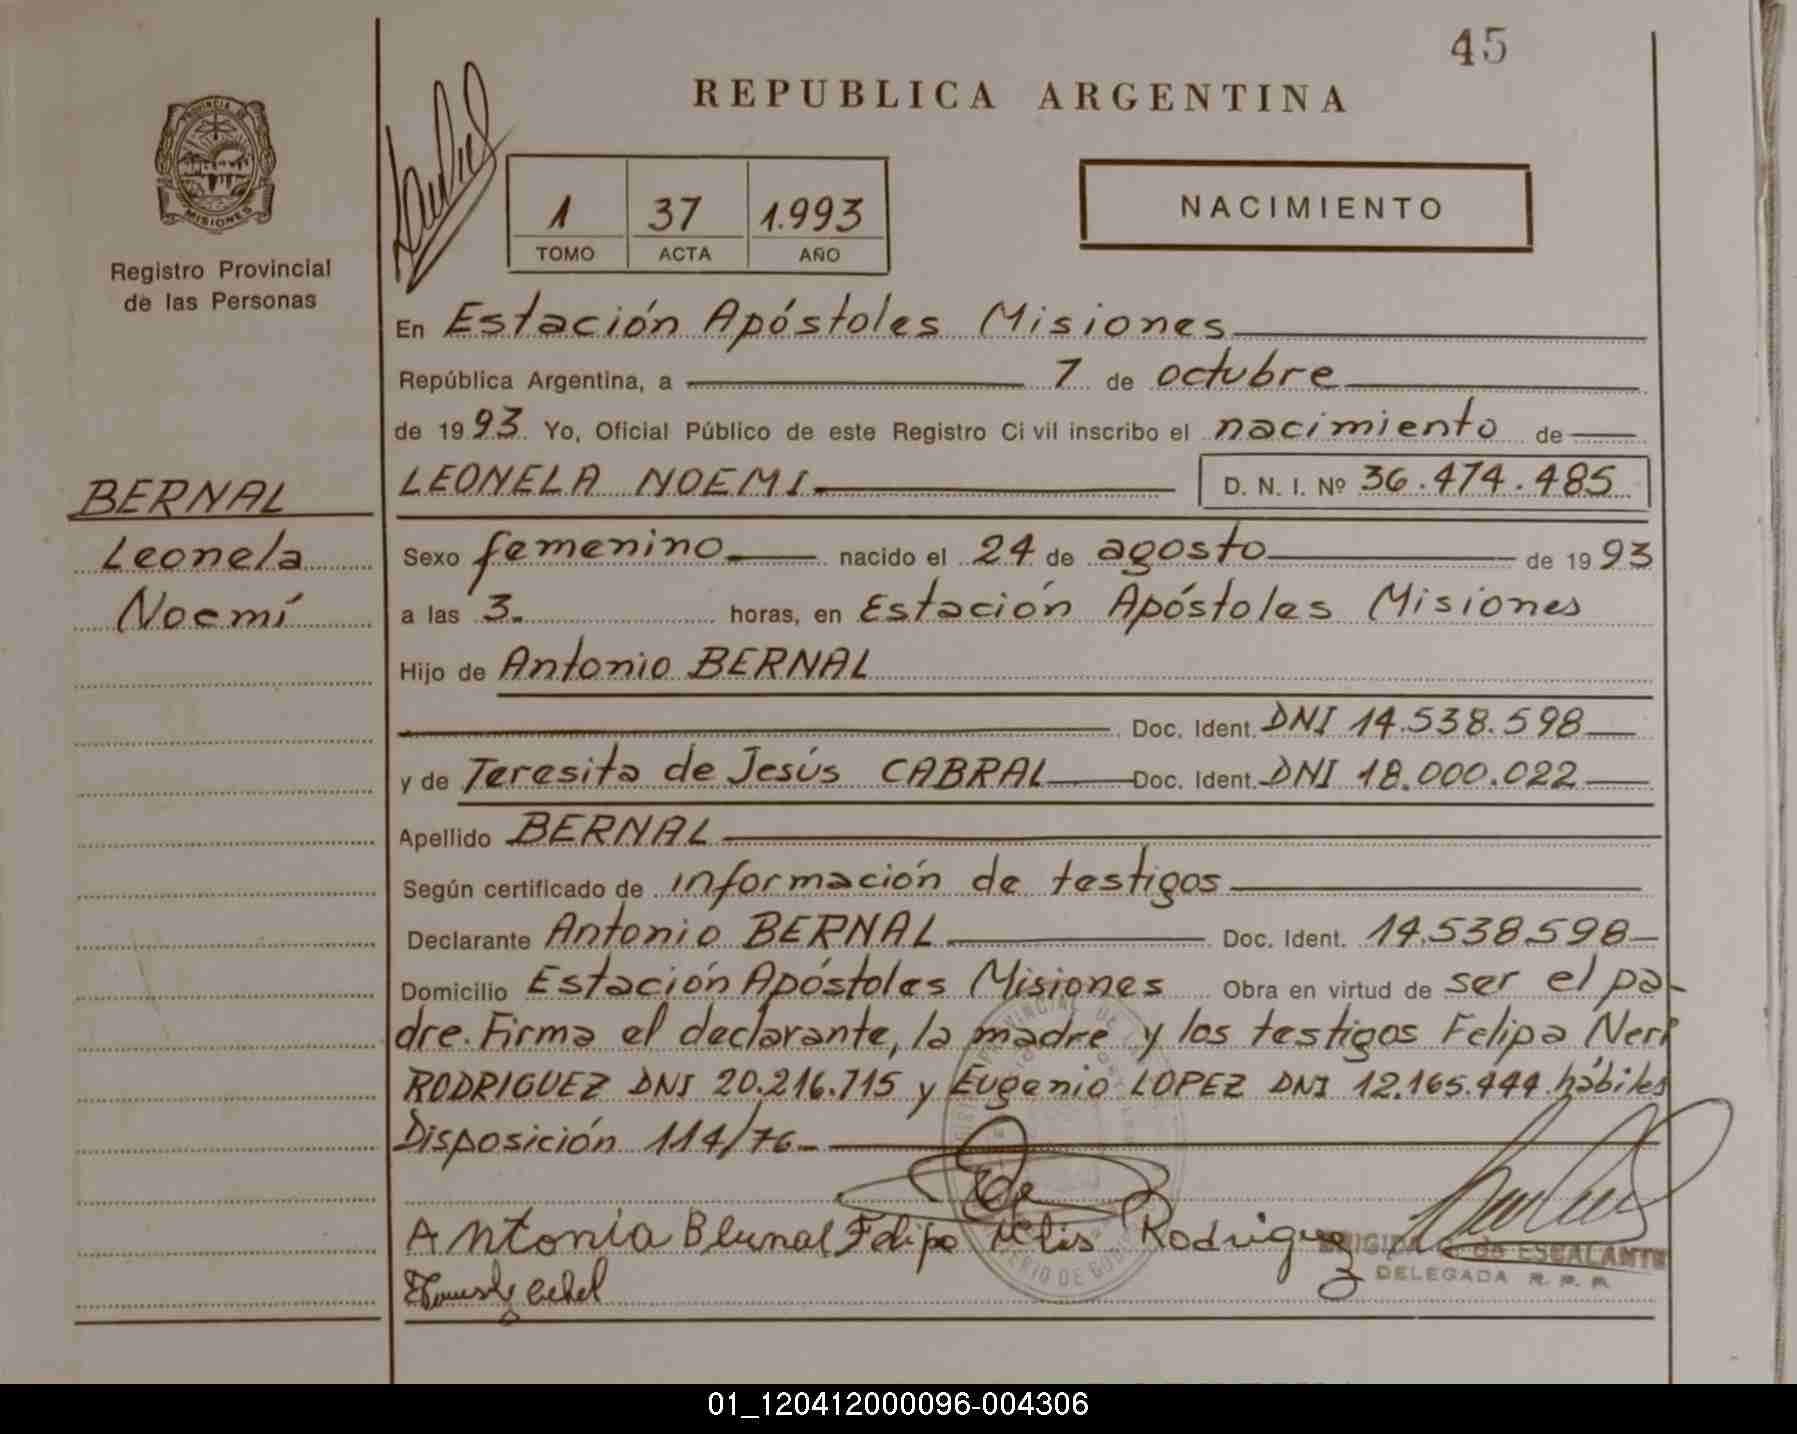 45
REPUBLICA ARGENTINA
PROVINCIA DE
MISIONES
Registro Provincial
de las Personas
1 37 1.993
TOMO ACTA AÑO
NACIMIENTO
En Estación Apóstoles Misiones
República Argentina, a 7 de octubre
de 1993 Yo, Oficial Público de este Registro Civil inscribo el nacimiento de
BERNAL
Leonela
Noemí
LEONELA NOEMI D. N. I. Nº 36.474.485
Sexo femenino nacido el 24 de agosto de 1993
a las 3. horas, en Estación Apóstoles Misiones
Hijo de Antonio BERNAL
Doc. Ident. DNI 14.538.598
y de Teresita de Jesús CABRAL Doc. Ident. DNI 18.000.022
Apellido BERNAL
Según certificado de información de testigos
Declarante Antonio BERNAL Doc. Ident. 14.538.598
Domicilio Estación Apóstoles Misiones Obra en virtud de ser el pa-
dre. Firma el declarante, la madre y los testigos Felipa Neri
RODRIGUEZ DNI 20.216.715 y Eugenio LOPEZ DNI 12.165.444 hábiles
Disposición 114/76
Rodriguez
de ESCALANTE
DELEGADA R. P. P.
01_120412000096-004306